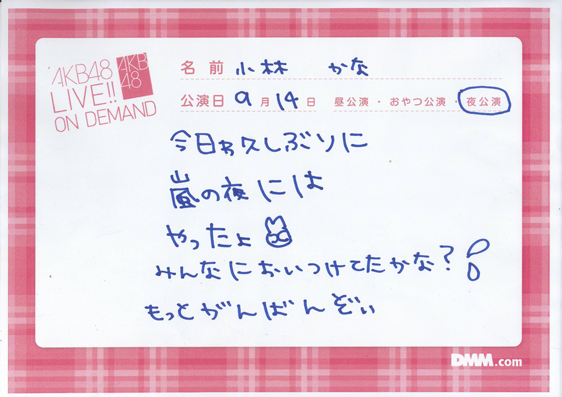 AKB48
LIVE!!
ON DEMAND
AKB
48
名前 小林 かな
公演日 9月14日 昼公演・おやつ公演・夜公演
今日わ久しぶりに
嵐の夜には
やったょ
みんなにおいつけてたかな?
もっとがんばんぞぃ
DMM.com